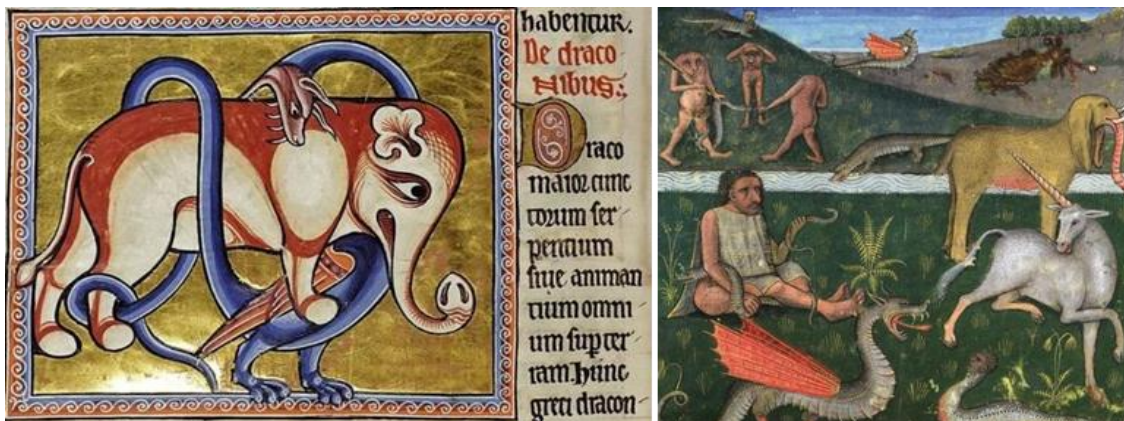 habentur.
De draco
nibus:,
Draco
maior cunc
torum ser/
pentium
siue animan
tium omni
um sup ter/
ram. Hunc
greci dracon/